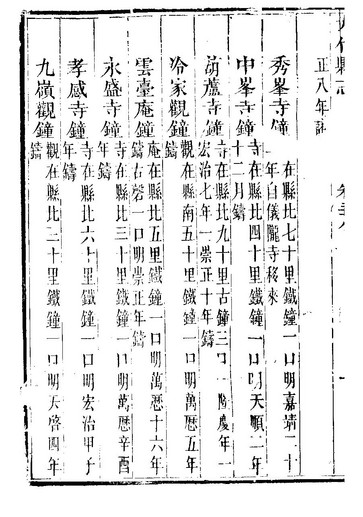 大竹縣志
卷
正八年記
秀峯寺鐘
寺在縣北七十里鐵鐘一口明嘉靖二十
年自儀隴寺移來
中峯寺鐘
寺在縣北四十里鐵鐘一口明天順二年
十二月鑄
葫蘆寺鐘
寺在縣北九十里古鐘三口一隆慶年一
宏治七年一崇正十年鑄
冷家觀鐘
觀在縣南五十里鐵鐘一口明萬曆五年
鑄
雲臺庵鐘
庵在縣北五里鐵鐘一口明萬曆十六年
鑄古磬一口明崇正年鑄
永盛寺鐘
寺在縣北三十里鐵鐘一口明萬曆辛酉
年鑄
孝感寺鐘
寺在縣北六十里鐵鐘一口明宏治甲子
年鑄
九嶺觀鐘
觀在縣北二十里鐵鐘一口明天啓四年
鑄